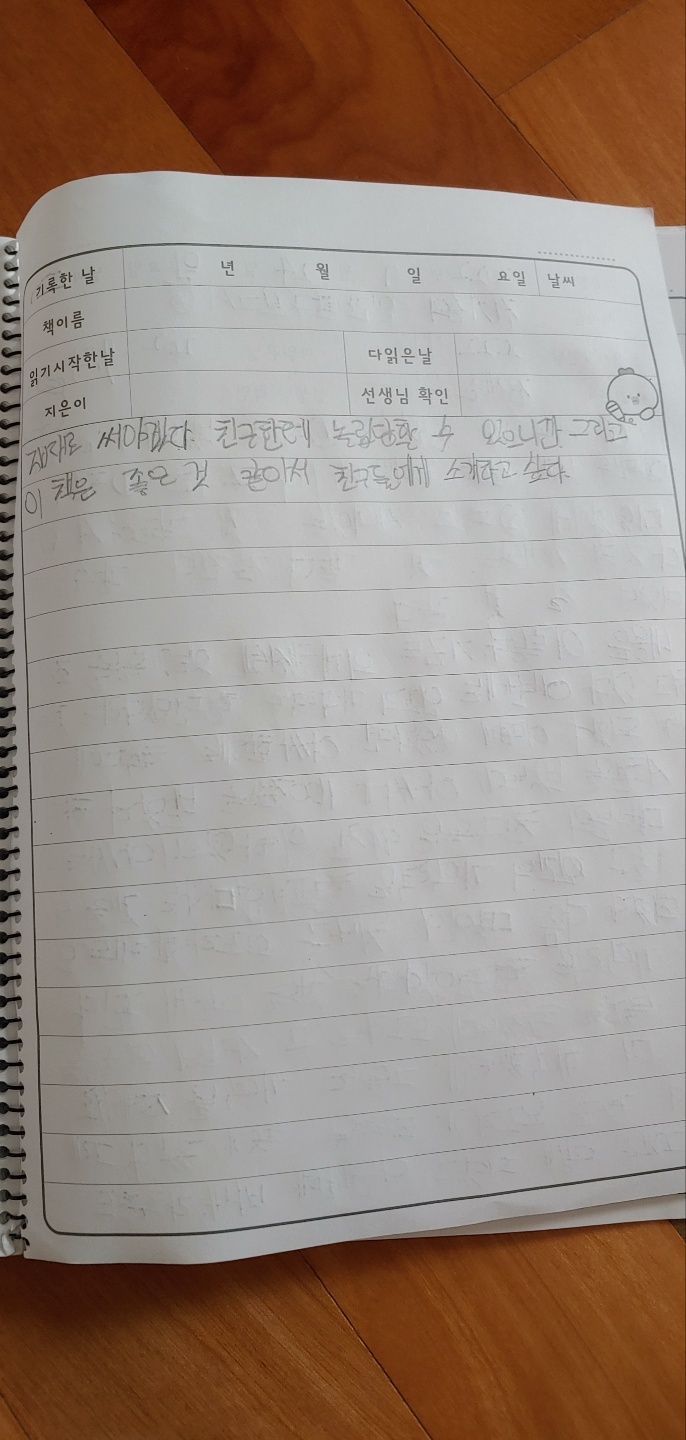 기록한 날 년 월 일 요일 날씨
책이름
읽기시작한날 다읽은날
지은이 선생님 확인
써야겠다. 친구한테 놀림당할 수 있으니깐 그리고
이 책은 좋은 것 같아서 친구들에게 소개하고 싶다.